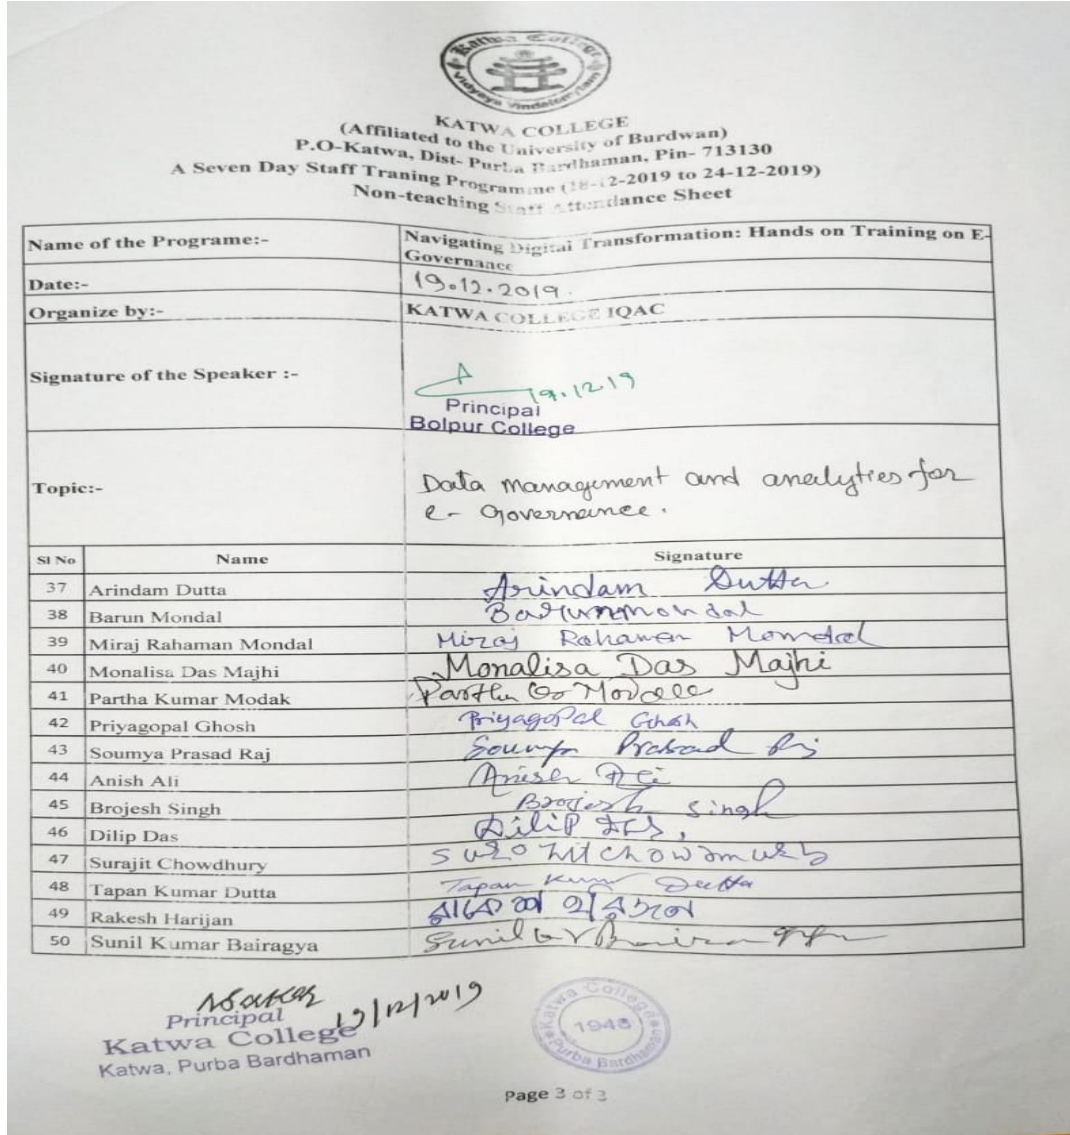 Katwa College
Vidyaya Vindateamritam
KATWA COLLEGE
(Affiliated to the University of Burdwan)
P.O-Katwa, Dist- Purba Bardhaman, Pin- 713130
A Seven Day Staff Traning Programme (18-12-2019 to 24-12-2019)
Non-teaching Staff Attendance Sheet
Name of the Programe:- Navigating Digital Transformation: Hands on Training on E-
Governance
Date:- 19.12.2019.
Organize by:- KATWA COLLEGE IQAC
Signature of the Speaker :- 19.12.19
Principal
Bolpur College
Topic:- Data management and analyties for
e- Governance.
Sl No Name Signature
37 Arindam Dutta Arindam Dutta
38 Barun Mondal Barun mondal
39 Miraj Rahaman Mondal Miraj Rahaman Mondal
40 Monalisa Das Majhi Monalisa Das Majhi
41 Partha Kumar Modak Partha
42 Priyagopal Ghosh Priyagopal Ghosh
43 Soumya Prasad Raj Soumya Prasad Raj
44 Anish Ali Anish Ali
45 Brojesh Singh Brojesh Singh
46 Dilip Das Dilip
47 Surajit Chowdhury
48 Tapan Kumar Dutta Tapan Kumar Dutta
49 Rakesh Harijan
50 Sunil Kumar Bairagya Sunil
19/12/2019
Principal
Katwa College
Katwa, Purba Bardhaman
Katwa College
1948
Purba Bardhaman
Page 3 of 3